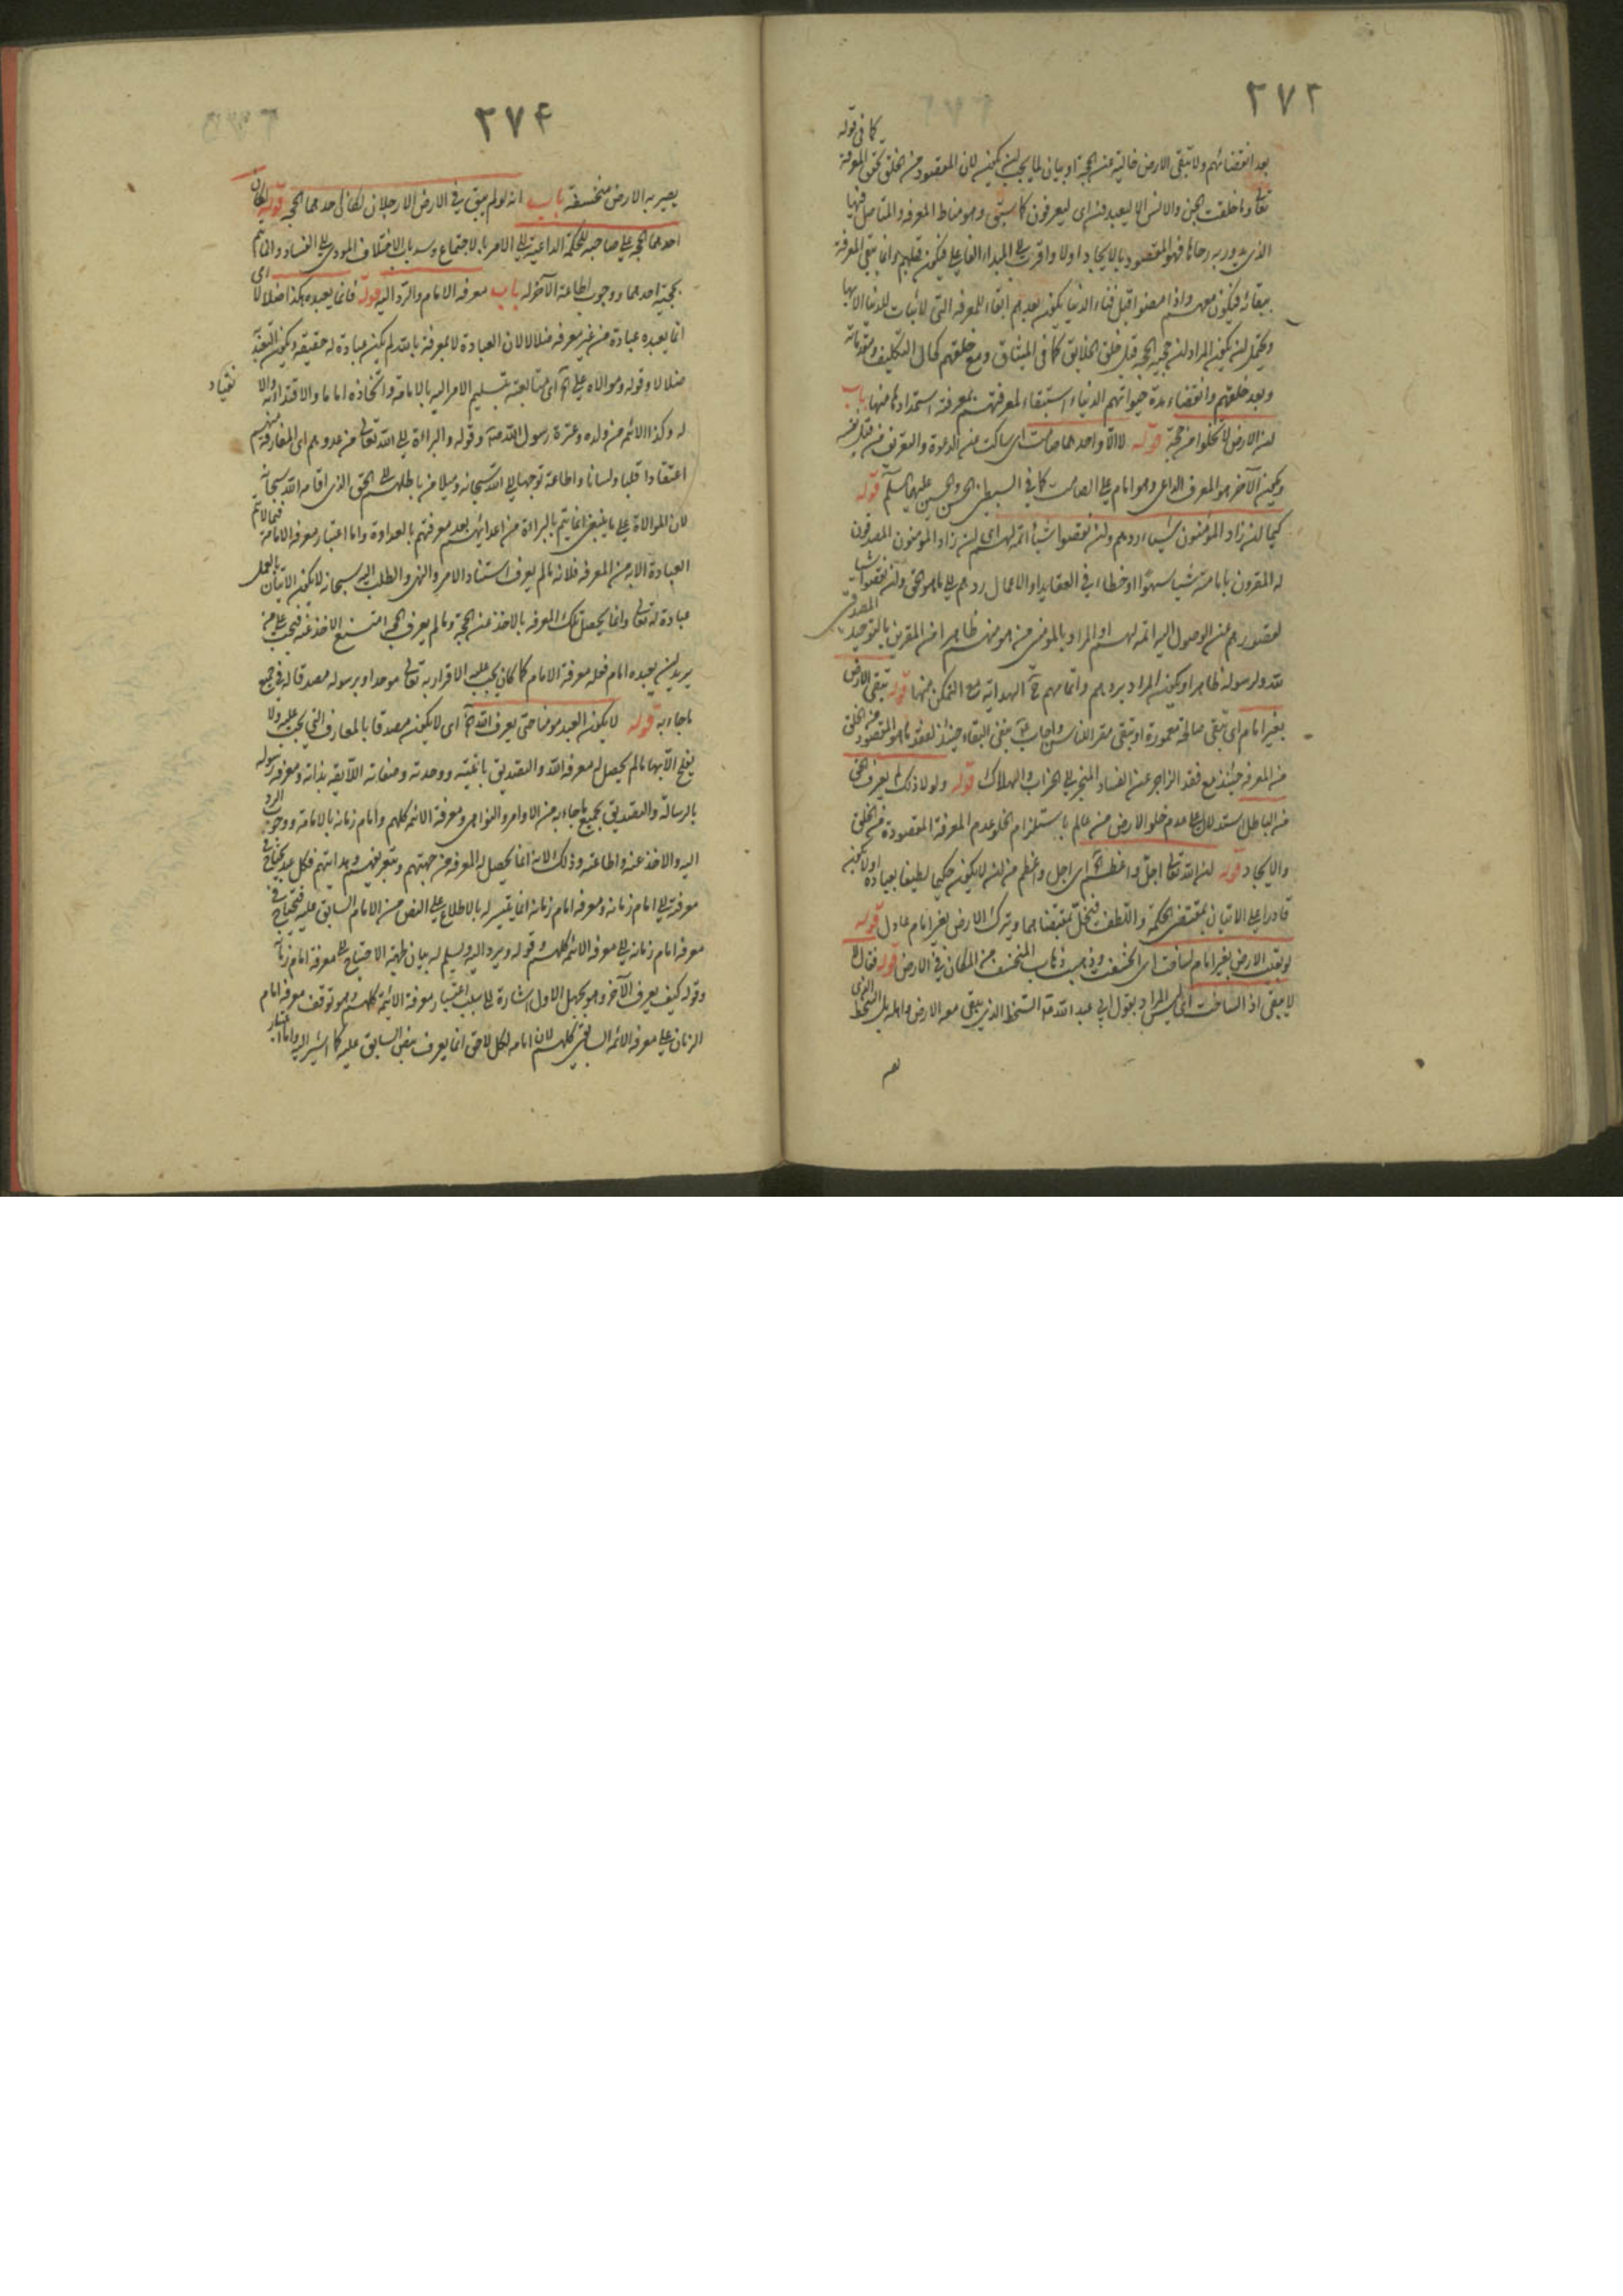 ٢٧٢
كما فى قوله
بعد انقضائهم ولا تبقى الارض خالية عن الحجة او بيان لما يجب ان يكون لان المقصود من الخلق تحقق المعرفة
تعالى وما خلقت الجن والانس الا ليعبدون اى ليعرفون كما سبق وهو مناط المعرفة والمتأصل فيها
الذى يدور به رحاها فهو المقصود بالايجاد اولا واقرب الى المبداء الفاعلى فيكون قبلهم وانما تبقى المعرفة
ببقائه فيكون معهم واذا مضوا قبل فناء الدنيا يكون بعدهم ابقاء للمعرفة التى لا ثبات للدنيا الا بها
ويحتمل ان يكون المراد ان حجية الحجة قبل خلق الخلايق كما فى الميثاق ومع خلقهم كحال التكليف
وبعد خلقهم وانقضاء مدة حيواتهم الدنياء استبقاء لمعرفتهم بمعرفة استمدادها منها باب
ان الارض لا تخلوا من حجة قوله لا الا واحدهما صامت اى ساكت عن الدعوة والتعريف من قبل نفسه
ويكون الآخر هو المعرف الداعى وهو امام على الصامت كما فى السبطين الحسن والحسين عليهما السلم قوله
كيما ان زاد المؤمنون شيئا ردهم وان نقصوا شيئا اتمه لهم اى ان زاد المؤمنون المصدقون
له المقرون بامامته شيئا سهوا او خطاء فى العقايد او الاعمال ردهم الى ما هو الحق وان نقصوا شيئا
لقصورهم عن الوصول اليه اتمه لهم او المراد بالمؤمنين من هو مؤمن ظاهرا من المقرين بالتوحيد
المصدقين
لله ولرسوله ظاهرا ويكون المراد بردهم واتمامهم الهداية مع التمكن منها قوله تبقى الارض
بغير امام اى تبقى صالحة معمورة او تبقى مقر الناس واجاب بنفى البقاء حينئذ لفقد ما هو المقصود من الخلق
من المعرفة حينئذ مع فقد الزاجر عن الفساد المنجر الى الخراب والهلاك قوله ولولا ذلك لم يعرف الحق
من الباطل استدلال على عدم خلو الارض من عالم باستلزام الخلو عدم المعرفة المقصودة من الخلق
والايجاد قوله ان الله تعالى اجل واعظم اى اجل واعظم من ان لا يكون حكيما لطيفا بعباده او لا يكون
قادرا على الاتيان بمقتضى الحكمة واللطف فيخل بمقتضاهما ويترك الارض بغير امام عادل قوله
لو بقيت الارض بغير امام لساخت اى انخسفت وذهبت ذهاب المنخسف من المكان فى الارض قوله فقال لا
لا تبقى اذا لساخت اى ليس المراد بقول ابى عبد الله السخط الذى يبقى معه الارض واهله بل السخط الذى
٢٧۴
يصير به الارض منخسفة باب انه لو لم يبق فى الارض الا رجلان لكان احدهما الحجة قوله لكان
احدهما الحجة على صاحبه للحكمة الداعية الى الامر بالاجتماع وسد باب الاختلاف المودى الى الفساد وانما يتم
بحجية احدهما ووجوب اطاعة الآخر له باب معرفة الامام والرد اليه قوله فانما يعبده هكذا ضلالا اى
انما يعبده عبادة من غير معرفة ضلالا لان العبادة لا بمعرفة بالله لم يكن عبادة له حقيقة ويكون التعبد
ضلالا وقوله وموالاه على اى متابعته بتسليم الامر اليه بالامامة واتخاذه اماما والاقتداء به والا
نقياد
له وكذا الائمه من ولده وعترة رسول الله وقوله والبراءة الى الله تعالى من عدوهم اى المفارقة منهم
اعتقادا قلبا ولسانا واطاعة توجها الى الله سبحانه وميلا من باطلهم الى الحق الذى اقامه الله سبحانه
لان الموالاة على ما ينبغى انما يتم بالبراءة من اعدائهم بعد معرفتهم بالعداوة واما اعتبار معرفة الامامة
فيما لا يتم
العبادة الا به من المعرفة فلانه ما لم يعرف استناد الامر والنهى والطلب اليه سبحانه لا يكون الاتيان بالعمل
عبادة له تعالى وانما يحصل تلك المعرفة بالاخذ عن الحجة وما لم يعرف الحجة امتنع الاخذ عنه فيجب على من
يريد ان يعبده امام فعله معرفة الامام كما كان يجب عليه الاقرار به تعالى موحدا وبرسوله مصدقا له فى جميع
ما جاء به قوله لا يكون العبد مؤمنا حتى يعرف الله اى لا يكون مصدقا بالمعارف التى يجب عليه ولا
يفلح الا بها ما لم يحصل له معرفة الله والتصديق بانيته ووحدته وصفاته اللايقة بذاته ومعرفة رسوله
بالرسالة والتصديق بجميع ما جاء به من الاوامر والنواهى ومعرفة الائمة كلهم وامام زمانه بالامامة ووجوب الرد
اليه والاخذ عنه واطاعته وذلك لانه انما يحصل له المعرفة من جهتهم وبتعريفهم وهدايتهم فكل عبد يحتاج فى
معرفته الى امام زمانه ومعرفة امام زمانه انما يتيسر له بالاطلاع على النص من الامام السابق عليه فيحتاج فى
معرفة امام زمانه الى معرفة الائمة كلهم وقوله ويرد اليه ويسلم له بيان لجهة الاحتياج الى معرفة امام زمانه
وقوله كيف يعرف الآخر وهو يجهل الاول اشارة الى سبب اعتبار معرفة الائمة كلهم وهو توقف معرفة امام
الزمان على معرفة الائمة السابقين كلهم لان امامة كل لاحق انما يعرف بنص السابق عليه كما اشير اليه واما اعتبار